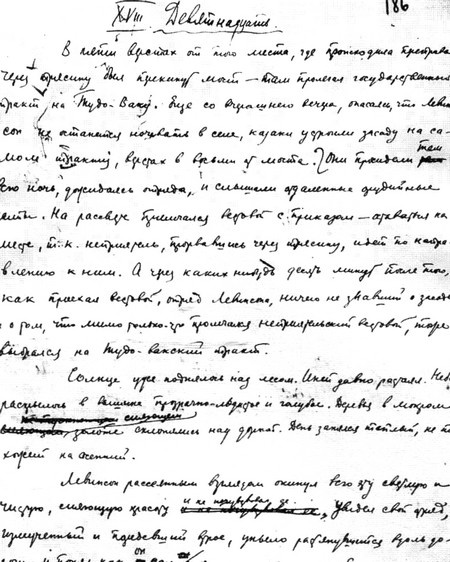 XVIII Девятнадцать.
186
В пяти верстах от того места, где происходила переправа
через трясину был перекинут мост — там пролегал государственный
тракт на Тудо-Ваку. Еще со вчерашнего вечера, опасаясь, что Левин-
сон не останется ночевать в селе, казаки устроили засаду на са-
мом тракте, верстах в восьми от моста. Они просидели там
всю ночь, дожидаясь отряда, и слышали отдаленные орудийные
залпы. На рассвете примчался вестовой с приказом — остаться на
месте, т.к. неприятель, прорвавшись через трясину, идет по напра-
влению к ним. А чрез каких нибудь десять минут после того,
как проехал вестовой, отряд Левинсона, ничего не знавший о засаде
и о том, что мимо только-что промчался неприятельский вестовой, тоже
выбрался на Тудо-вакский тракт.
Солнце уже поднялось над лесом. Иней давно растаял. Небо
раскрылось в вышине прозрачно-льдистое и голубое. Деревья в мокром
сияющем
золоте склонялись над дорогой. День занялся теплый, не по-
хожий на осенний.
Левинсон рассеянным взглядом окинул всю эту светлую и
чистую, сияющую красоту и не почувствовал ее. Увидел свой отряд,
измученный и поредевший втрое, уныло растянувшийся вдоль до-
роги, и понял как он